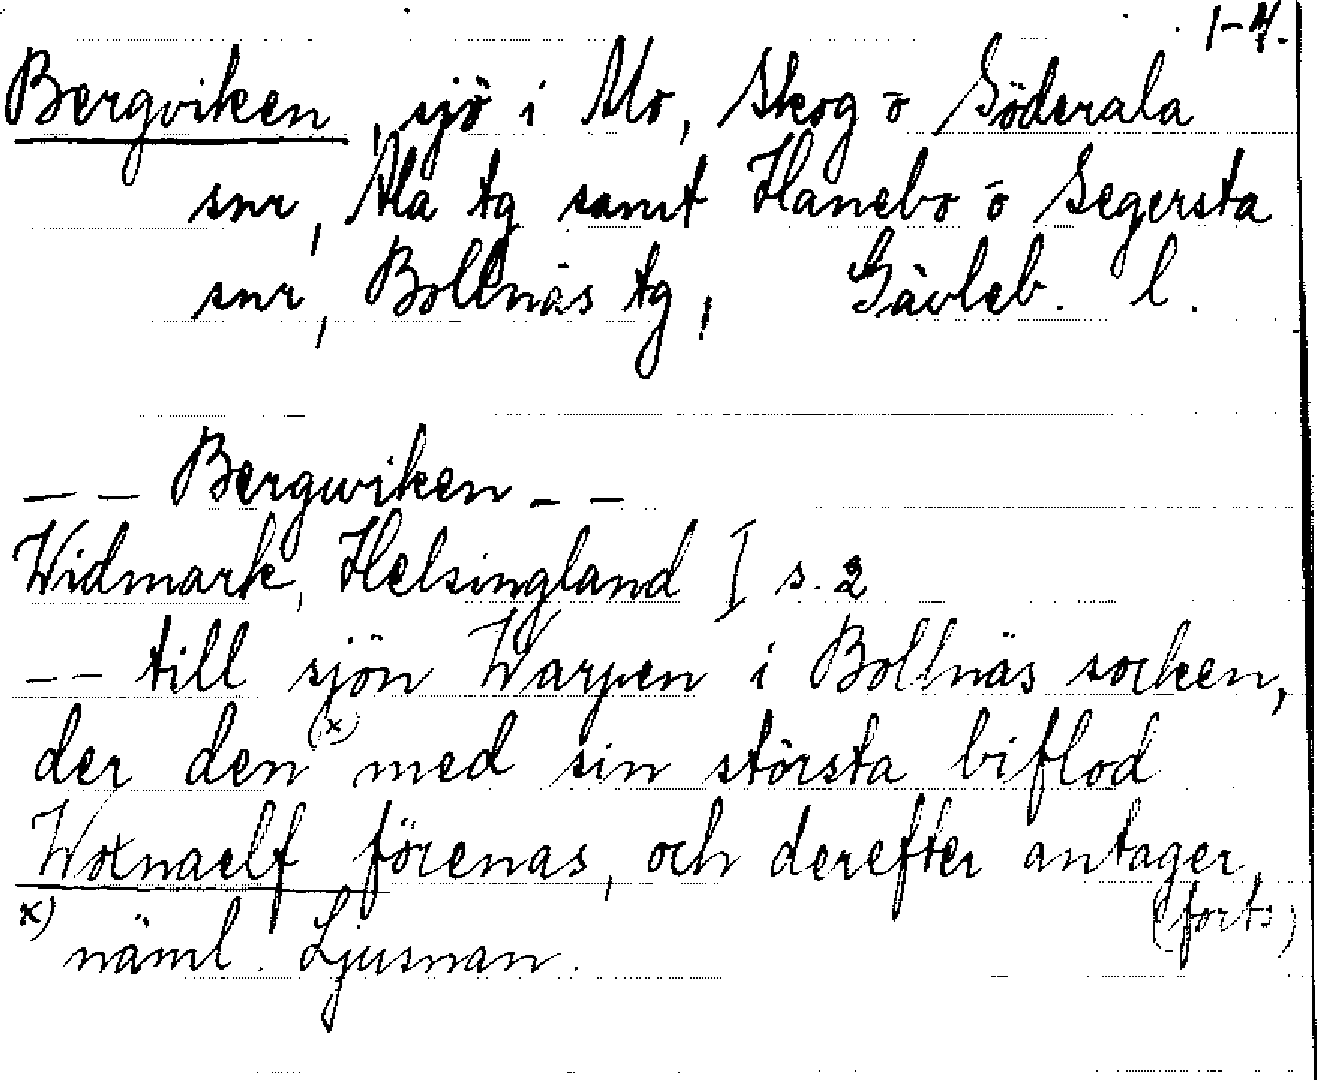 1-4.
Bergviken, sjö i Mo, Skog o Söderala
snr, Ala tg samt Hanebo o Segersta
snr, Bollnäs tg, Gävleb. l.
— — Bergwiken — —
Widmark, Helsingland I s. 2
-- till sjön Warpen i Bollnäs socken,
der den (x) med sin största biflod
Woxnaelf förenas, och derefter antager,
(forts)
x) näml. Ljusnan.